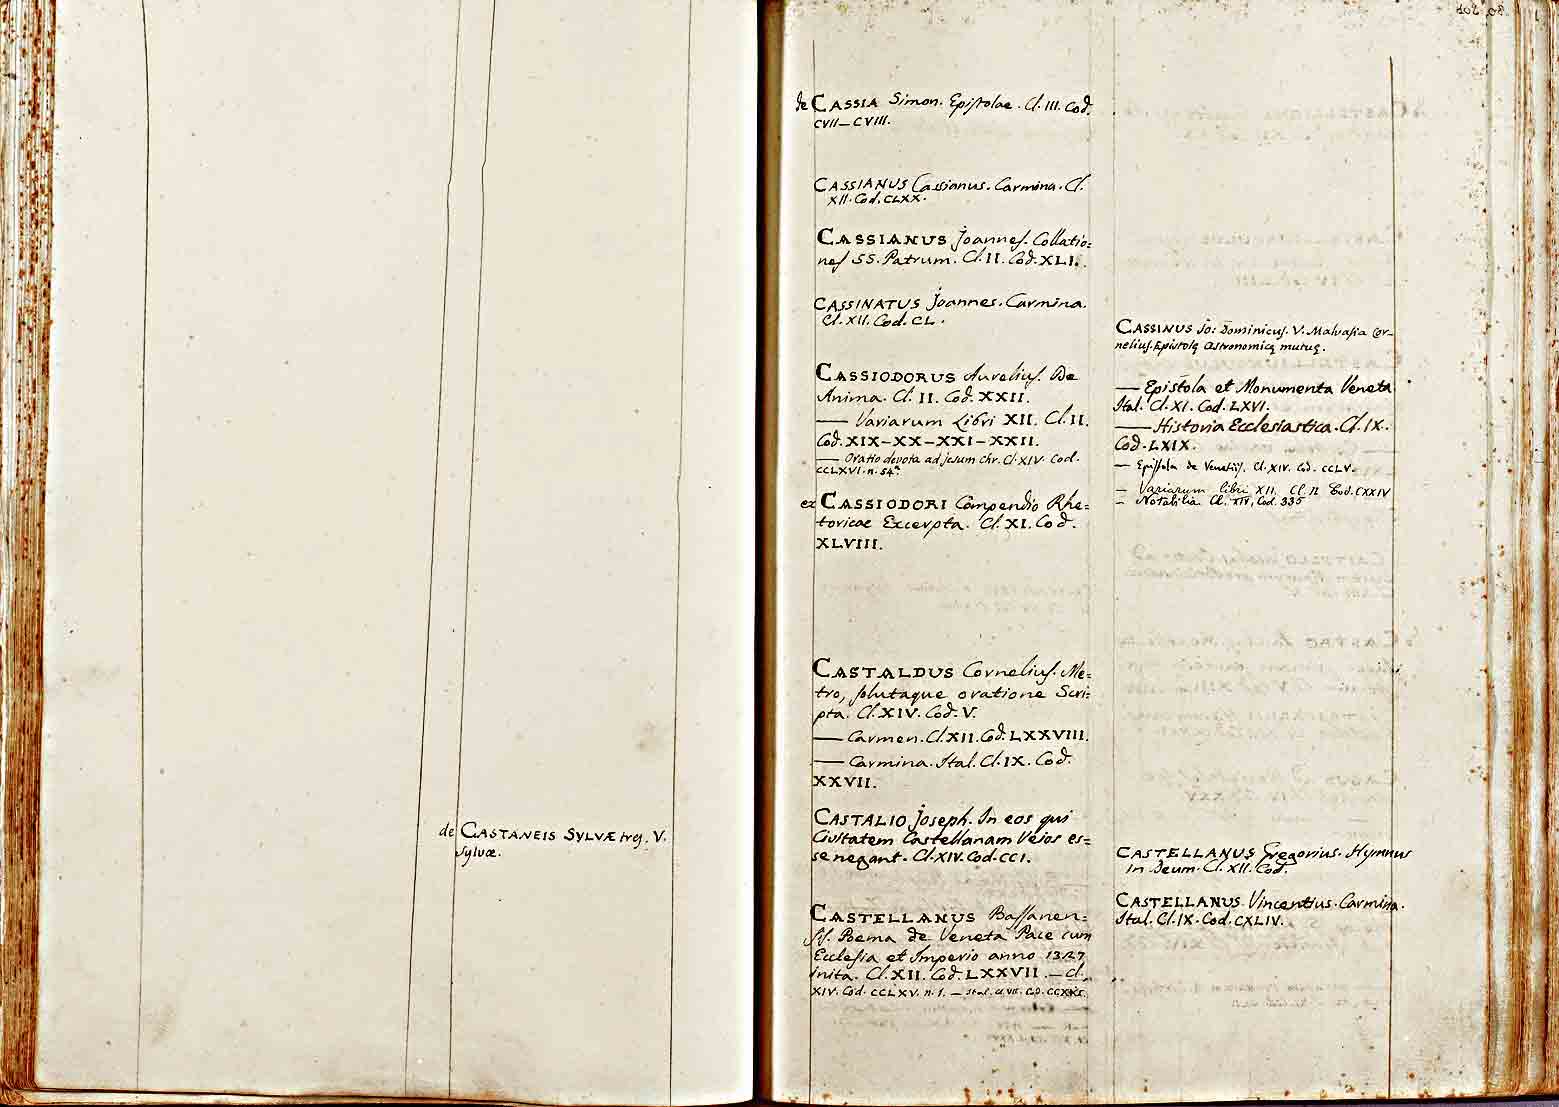 de CASTANEIS SYLVÆ treg. V.
Sylvæ.
de CASSIA Simon. Epistolae. Cl. III. Cod.
CVII–CVIII.
CASSIANUS Cassianus. Carmina. Cl.
XII. Cod. CLXX.
CASSIANUS Joannes. Collatio=
nes SS. Patrum. Cl. II. Cod. XLI.
CASSINATUS Joannes. Carmina.
Cl. XII. Cod. CL.
CASSIODORUS Aurelius. De
Anima. Cl. II. Cod. XXII.
— Variarum Libri XII. Cl. II.
Cod. XIX–XX–XXI–XXII.
— Oratio devota ad Jesum Chr. Cl. XIV. Cod.
CCLXVI. n. 54.
ex CASSIODORI Compendio Rhe=
toricae Excerpta. Cl. XI. Cod.
XLVIII.
CASTALDUS Cornelius. Me=
tro, solutaque oratione Scri=
pta. Cl. XIV. Cod. V.
— Carmen. Cl. XII. Cod. LXXVIII.
— Carmina. Ital. Cl. IX. Cod.
XXVII.
CASTALIO Joseph. In eos qui
Civitatem Castellanam Vejos es=
se negant. Cl. XIV. Cod. CCI.
CASTELLANUS Bassanen=
sis. Poema de Veneta Pace cum
Ecclesia et Imperio anno 1327
inita. Cl. XII. Cod. LXXVII. — Cl.
XIV. Cod. CCLXV. n. 1. — Ital. Cl. VII. Cod.
CASSINUS Jo: Dominicus. V. Malvasia Cor-
nelius. Epistolę Astronomicę mutuę.
— Epistola et Monumenta Veneta
Ital. Cl. XI. Cod. LXVI.
— Historia Ecclesiastica. Cl. IX.
Cod. LXIX.
— Epistola de Venetiis. Cl. XIV. Cod. CCLV.
— Variarum libri XII. Cl. II Cod. CXXIV
— Notabilia. Cl. XIV, Cod. 335
CASTELLANUS Gregorius. Hymnus
in Deum. Cl. XII. Cod.
CASTELLANUS Vincentius. Carmina.
Ital. Cl. IX. Cod. CXLIV.